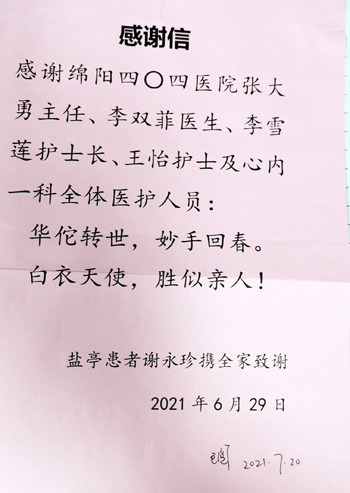 感谢信
感谢绵阳四〇四医院张大
勇主任、李双菲医生、李雪
莲护士长、王怡护士及心内
一科全体医护人员：
华佗转世，妙手回春。
白衣天使，胜似亲人！
盐亭患者谢永珍携全家致谢
2021年6月29日
2021.7.20